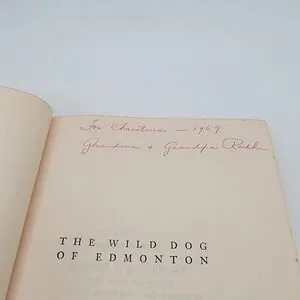 For Christmas — 1969
Grandma + Grandpa
THE WILD DOG
OF EDMONTON